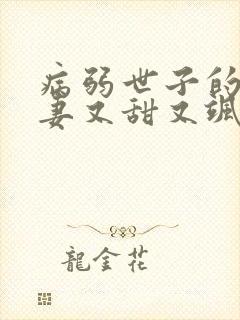 病弱世子的
妻又甜又飒
龍金花